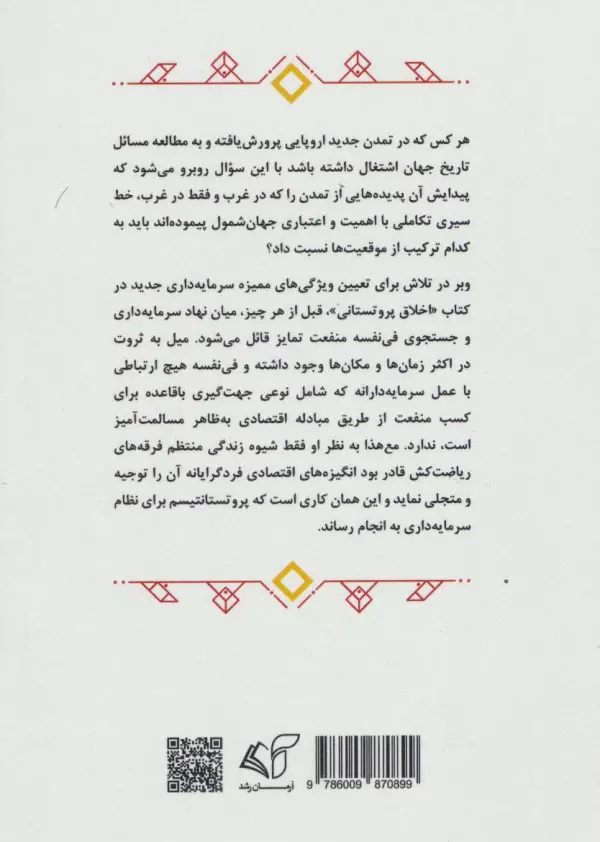 هر کس که در تمدن جدید اروپایی پرورش‌یافته و به مطالعه مسائل
تاریخ جهان اشتغال داشته باشد با این سؤال روبرو می‌شود که
پیدایش آن پدیده‌هایی از تمدن را که در غرب و فقط در غرب، خط
سیری تکاملی با اهمیت و اعتباری جهان‌شمول پیموده‌اند باید به
کدام ترکیب از موقعیت‌ها نسبت داد؟
وبر در تلاش برای تعیین ویژگی‌های ممیزه سرمایه‌داری جدید در
کتاب «اخلاق پروتستانی»، قبل از هر چیز، میان نهاد سرمایه‌داری
و جستجوی فی‌نفسه منفعت تمایز قائل می‌شود. میل به ثروت
در اکثر زمان‌ها و مکان‌ها وجود داشته و فی‌نفسه هیچ ارتباطی
با عمل سرمایه‌دارانه که شامل نوعی جهت‌گیری باقاعده برای
کسب منفعت از طریق مبادله اقتصادی به‌ظاهر مسالمت‌آمیز
است، ندارد. مع‌هذا به نظر او فقط شیوه زندگی منتظم فرقه‌های
ریاضت‌کش قادر بود انگیزه‌های اقتصادی فردگرایانه آن را توجیه
و متجلی نماید و این همان کاری است که پروتستانتیسم برای نظام
سرمایه‌داری به انجام رساند.
آرمــان رشد
9 786009 870899